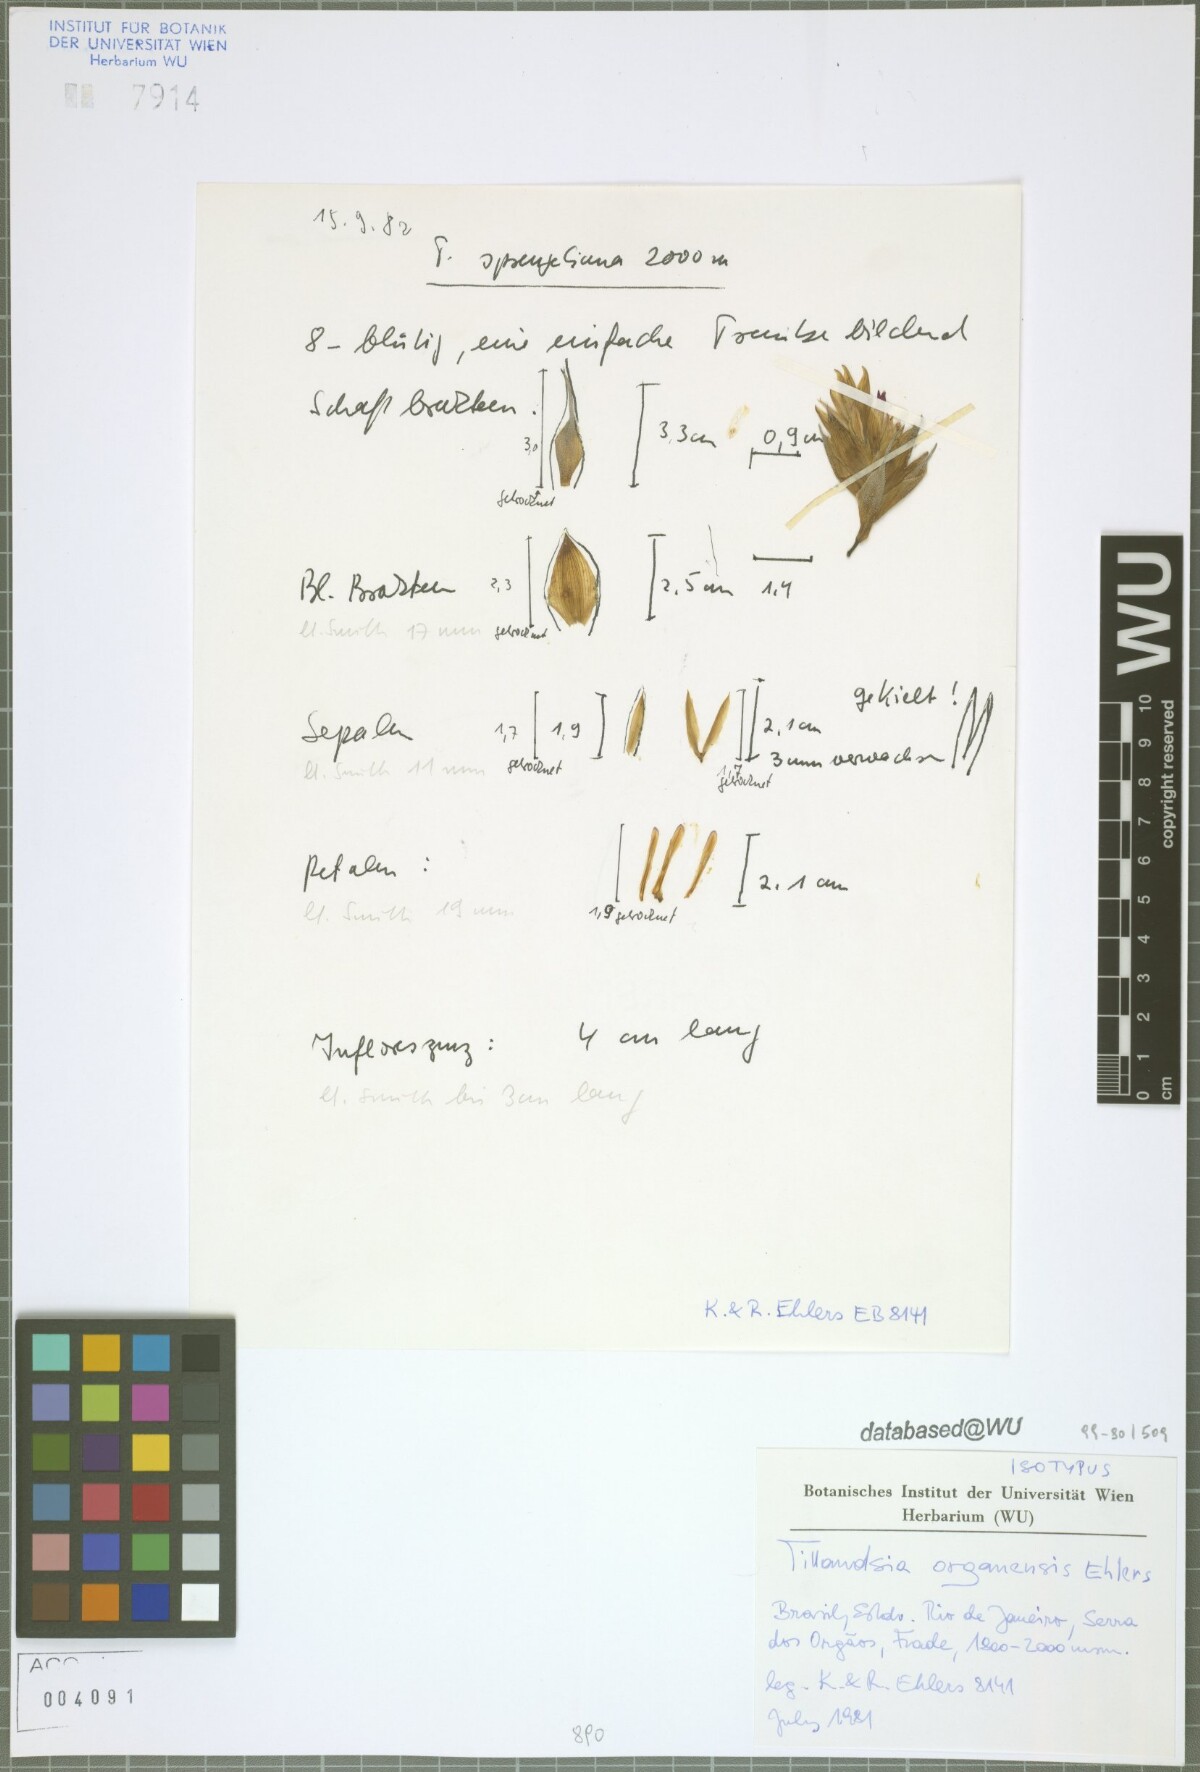 INSTITUT FÜR BOTANIK
DER UNIVERSITÄT WIEN
Herbarium WU
7914
15.9.82
T. sprengeliana 2000 m
8-blütig, eine einfache Traube bildend
Schaftbrakteen.
3,0
getrocknet
3,3 cm
0,9 cm
Bl. Brakteen
2,3
getrocknet
2,5 cm
1,4
lt. Smith 17 mm
gekielt!
Sepalen
1,7
1,9
2,1 cm
3 mm verwachsen
lt. Smith 11 mm
getrocknet
1,7
getrocknet
Petalen:
2,1 cm
lt. Smith 19 mm
1,9 getrocknet
Infloreszenz: 4 cm lang
lt. Smith bis 3 cm lang
K. & R. Ehlers EB 8141
WU
copyright reserved
0 1 2 3 4 5 6 7 8 9 10
cm
databased@WU
99-30/509
ISOTYPUS
Botanisches Institut der Universität Wien
Herbarium (WU)
Tillandsia organensis Ehlers
Brasil, Rio de Janeiro, Serra
dos Orgãos, Frade, 1800-2000 msm.
leg. K. & R. Ehlers 8141
July 1981
004091
890